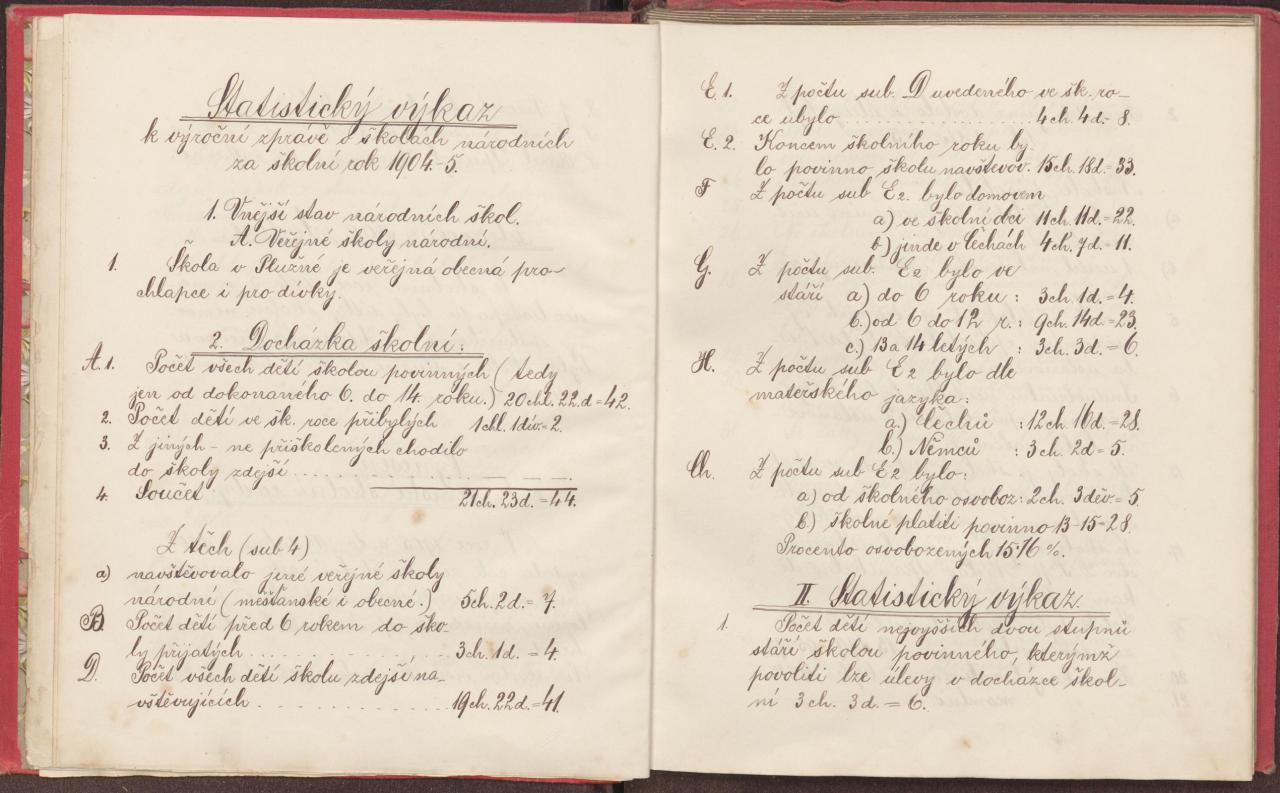 Statistický výkaz
k výroční zprávě o školách národních
za školní rok 1904-5.
1. Vnější stav národních škol.
A. Veřejné školy národní.
1. Škola v Plužné je veřejná obecná pro
chlapce i pro dívky.
2. Docházka školní:
A. 1. Počet všech dětí školou povinných (tedy
jen od dokonaného 6. do 14. roku.) 20 chl. 22.d = 42.
2. Počet dětí ve šk. roce přibylých 1 chl. 1 dív. = 2.
3. Z jiných - ne přiškolených chodilo
do školy zdejší .......... — — —
4. Součet 21 ch. 23 d. = 44.
Z těch (sub 4)
a) navštěvovalo jiné veřejné školy
národní (měšťanské i obecné.) 5 ch. 2 d. = 7.
B. Počet dětí před 6 rokem do ško-
ly přijatých .......... 3 ch. 1 d. = 4.
D. Počet všech dětí školu zdejší na-
vštěvujících .......... 19 ch. 22 d. = 41.
E. 1. Z počtu sub. D uvedeného ve šk. ro-
ce ubylo .......... 4 ch. 4 d. = 8.
E. 2. Koncem školního roku by-
lo povinno školu navštěvov. 15 ch. 18 d. = 33.
F Z počtu sub E2. bylo domovem
a) ve školní obci 11 ch. 11 d. = 22.
b) jinde v Čechách 4 ch. 7 d. = 11.
G. Z počtu sub. E2 bylo ve
stáří a) do 6 roku: 3 ch. 1 d. = 4.
b.) od 6 do 12 r.: 9 ch. 14 d. = 23.
c.) 13 a 14 letých: 3 ch. 3 d. = 6.
H. Z počtu sub E2 bylo dle
mateřského jazyka:
a.) Čechů : 12 ch. 16 d. = 28.
b.) Němců : 3 ch. 2 d = 5.
Ch. Z počtu sub E2 bylo:
a) od školného osvoboz: 2 ch. 3 děv. = 5
b.) školné platiti povinno 13-15 = 28.
Procento osvobozených 15.76 %.
II. Statistický výkaz.
1. Počet dětí nejvyšších dvou stupňů
stáří školou povinného, kterýmž
povoliti lze úlevy v docházce škol-
ní 3 ch. 3 d. = 6.